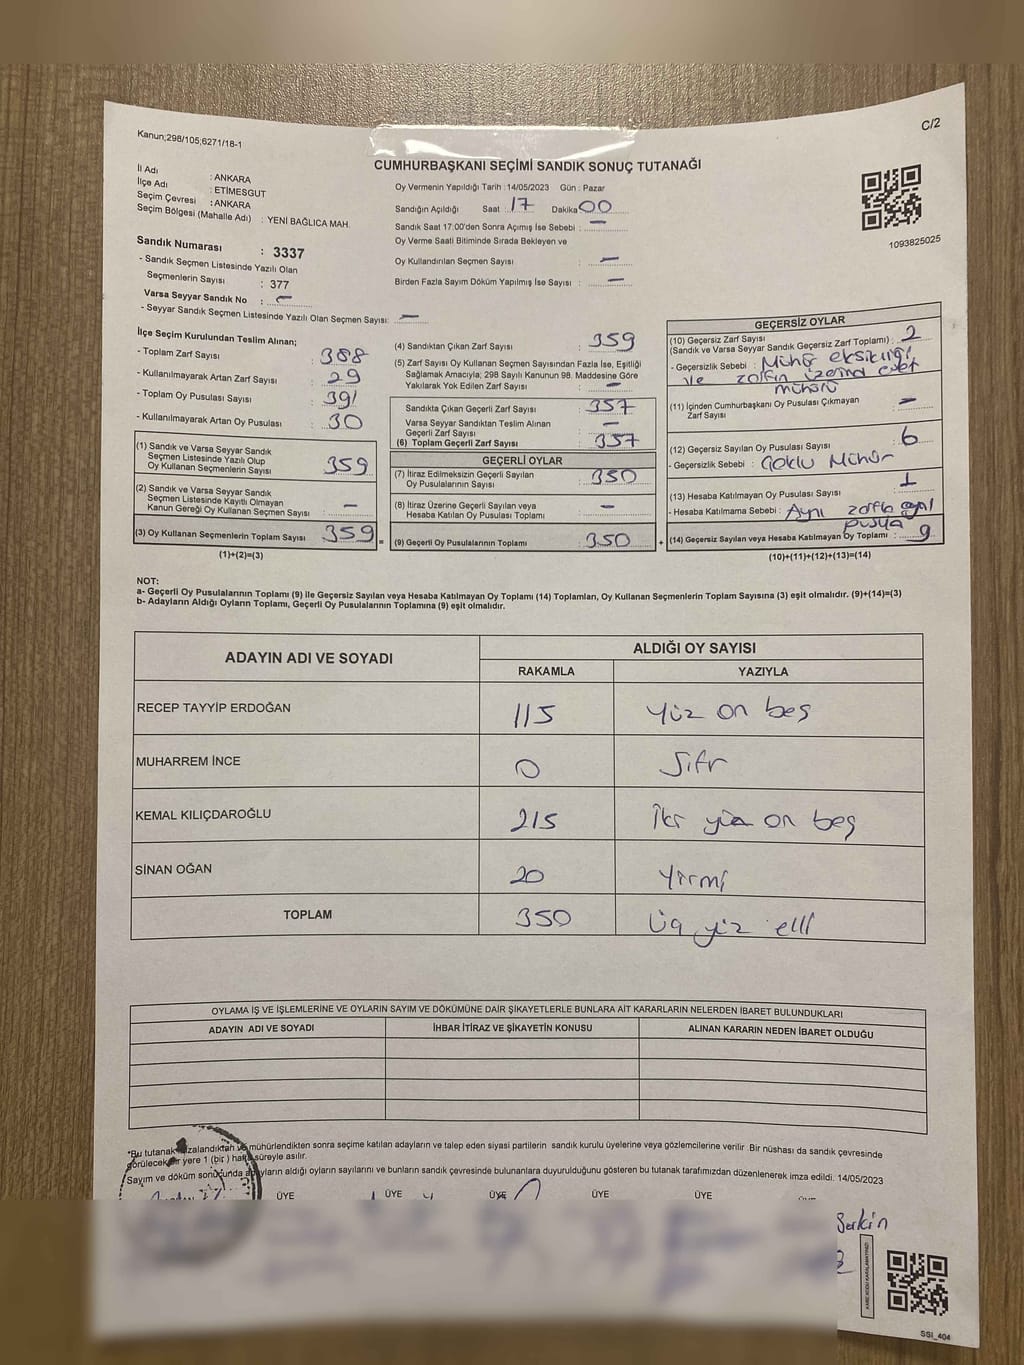 C/2
Kanun;298/105;6271/18-1
CUMHURBAŞKANI SEÇİMİ SANDIK SONUÇ TUTANAĞI
İl Adı : ANKARA
İlçe Adı : ETİMESGUT
Seçim Çevresi : ANKARA
Seçim Bölgesi (Mahalle Adı) : YENİ BAĞLICA MAH.
Sandık Numarası : 3337
- Sandık Seçmen Listesinde Yazılı Olan
Seçmenlerin Sayısı : 377
Varsa Seyyar Sandık No : -
- Seyyar Sandık Seçmen Listesinde Yazılı Olan Seçmen Sayısı: -
Oy Vermenin Yapıldığı Tarih : 14/05/2023 Gün : Pazar
Sandığın Açıldığı Saat 17 Dakika 00
Sandık Saat 17:00'den Sonra Açımış İse Sebebi : -
Oy Verme Saati Bitiminde Sırada Bekleyen ve
Oy Kullandırılan Seçmen Sayısı : -
Birden Fazla Sayım Döküm Yapılmış İse Sayısı : -
1093825025
İlçe Seçim Kurulundan Teslim Alınan;
- Toplam Zarf Sayısı : 388
- Kullanılmayarak Artan Zarf Sayısı : 29
- Toplam Oy Pusulası Sayısı : 391
- Kullanılmayarak Artan Oy Pusulası : 30
(1) Sandık ve Varsa Seyyar Sandık
Seçmen Listesinde Yazılı Olup
Oy Kullanan Seçmenlerin Sayısı : 359
(2) Sandık ve Varsa Seyyar Sandık
Seçmen Listesinde Kayıtlı Olmayan
Kanun Gereği Oy Kullanan Seçmen Sayısı : -
(3) Oy Kullanan Seçmenlerin Toplam Sayısı : 359 =
(1)+(2)=(3)
(4) Sandıktan Çıkan Zarf Sayısı : 359
(5) Zarf Sayısı Oy Kullanan Seçmen Sayısından Fazla İse, Eşitliği
Sağlamak Amacıyla, 298 Sayılı Kanunun 98. Maddesine Göre
Yakılarak Yok Edilen Zarf Sayısı : -
Sandıkta Çıkan Geçerli Zarf Sayısı : 357
Varsa Seyyar Sandıktan Teslim Alınan
Geçerli Zarf Sayısı : -
(6) Toplam Geçerli Zarf Sayısı : 357
GEÇERLİ OYLAR
(7) İtiraz Edilmeksizin Geçerli Sayılan
Oy Pusulalarının Sayısı : 350
(8) İtiraz Üzerine Geçerli Sayılan veya
Hesaba Katılan Oy Pusulası Toplamı : -
(9) Geçerli Oy Pusulalarının Toplamı : 350 +
GEÇERSİZ OYLAR
(10) Geçersiz Zarf Sayısı
(Sandık ve Varsa Seyyar Sandık Geçersiz Zarf Toplamı) : 2
- Geçersizlik Sebebi : Mühür eksikliği
ile zarfın üzerind evet
mühürü
(11) İçinden Cumhurbaşkanı Oy Pusulası Çıkmayan
Zarf Sayısı : -
(12) Geçersiz Sayılan Oy Pusulası Sayısı : 6
- Geçersizlik Sebebi : Çoklu Mühür
(13) Hesaba Katılmayan Oy Pusulası Sayısı : 1
- Hesaba Katılmama Sebebi : Aynı zarfta
pusula
(14) Geçersiz Sayılan veya Hesaba Katılmayan Oy Toplamı : 9
(10)+(11)+(12)+(13)=(14)
NOT:
a- Geçerli Oy Pusulalarının Toplamı (9) ile Geçersiz Sayılan veya Hesaba Katılmayan Oy Toplamı (14) Toplamları, Oy Kullanan Seçmenlerin Toplam Sayısına (3) eşit olmalıdır. (9)+(14)=(3)
b- Adayların Aldığı Oyların Toplamı, Geçerli Oy Pusulalarının Toplamına (9) eşit olmalıdır.
ADAYIN ADI VE SOYADI ALDIĞI OY SAYISI
RAKAMLA YAZIYLA
RECEP TAYYİP ERDOĞAN 115 yüz on beş
MUHARREM İNCE 0 Sıfır
KEMAL KILIÇDAROĞLU 215 İki yüz on beş
SİNAN OĞAN 20 Yirmi
TOPLAM 350 üç yüz elli
OYLAMA İŞ VE İŞLEMLERİNE VE OYLARIN SAYIM VE DÖKÜMÜNE DAİR ŞİKAYETLERLE BUNLARA AİT KARARLARIN NELERDEN İBARET BULUNDUKLARI
ADAYIN ADI VE SOYADI İHBAR İTİRAZ VE ŞİKAYETİN KONUSU ALINAN KARARIN NEDEN İBARET OLDUĞU
*Bu tutanak mühürlendikten sonra seçime katılan adayların ve talep eden siyasi partilerin sandık kurulu üyelerine veya gözlemcilerine verilir. Bir nüshası da sandık çevresinde
görülecek bir yere 1 (bir) hafta süreyle asılır.
Sayım ve döküm sonucunda adayların aldığı oyların sayılarını ve bunların sandık çevresinde bulunanlara duyurulduğunu gösteren bu tutanak tarafımızdan düzenlenerek imza edildi. 14/05/2023
ÜYE ÜYE ÜYE ÜYE ÜYE
Serkin
SSI_404